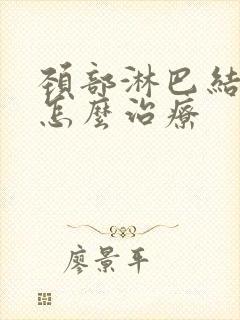 頸部淋巴結
怎麼治療
廖景平